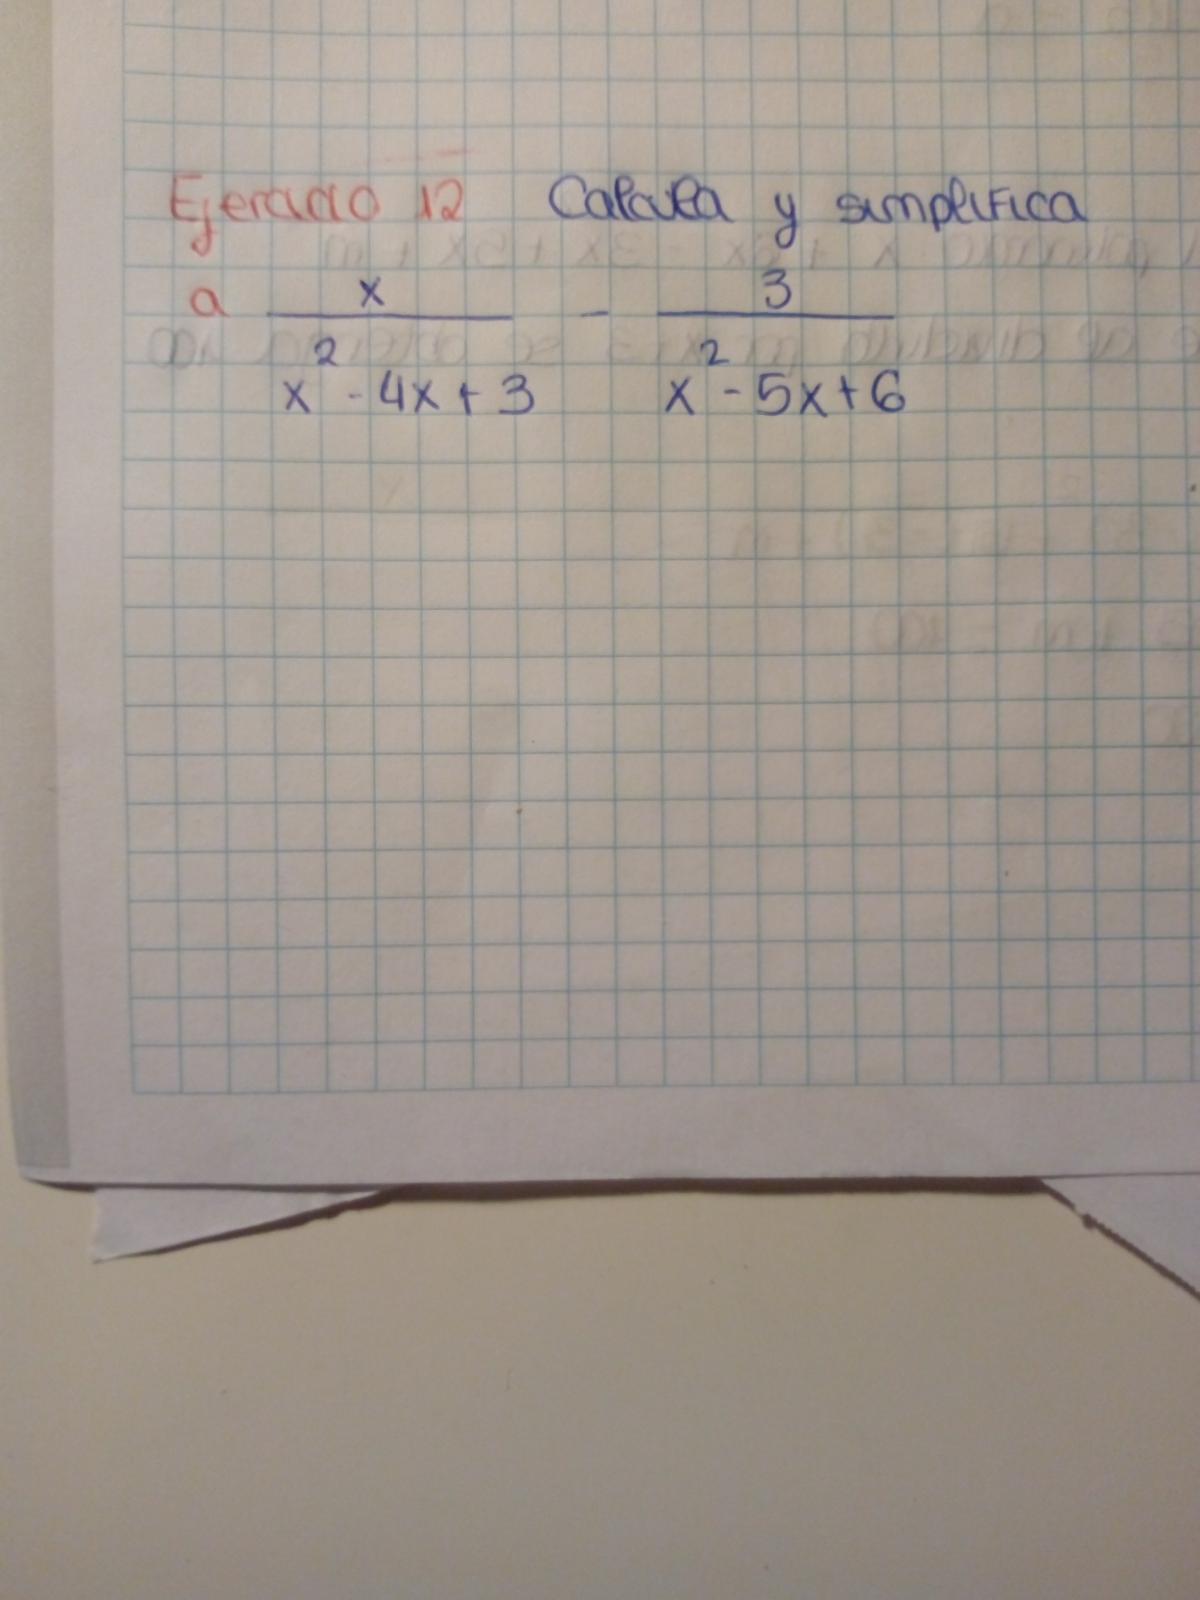 Ejercicio 12 Calcula y simplifica
a x/(x² - 4x + 3) - 3/(x² - 5x + 6)